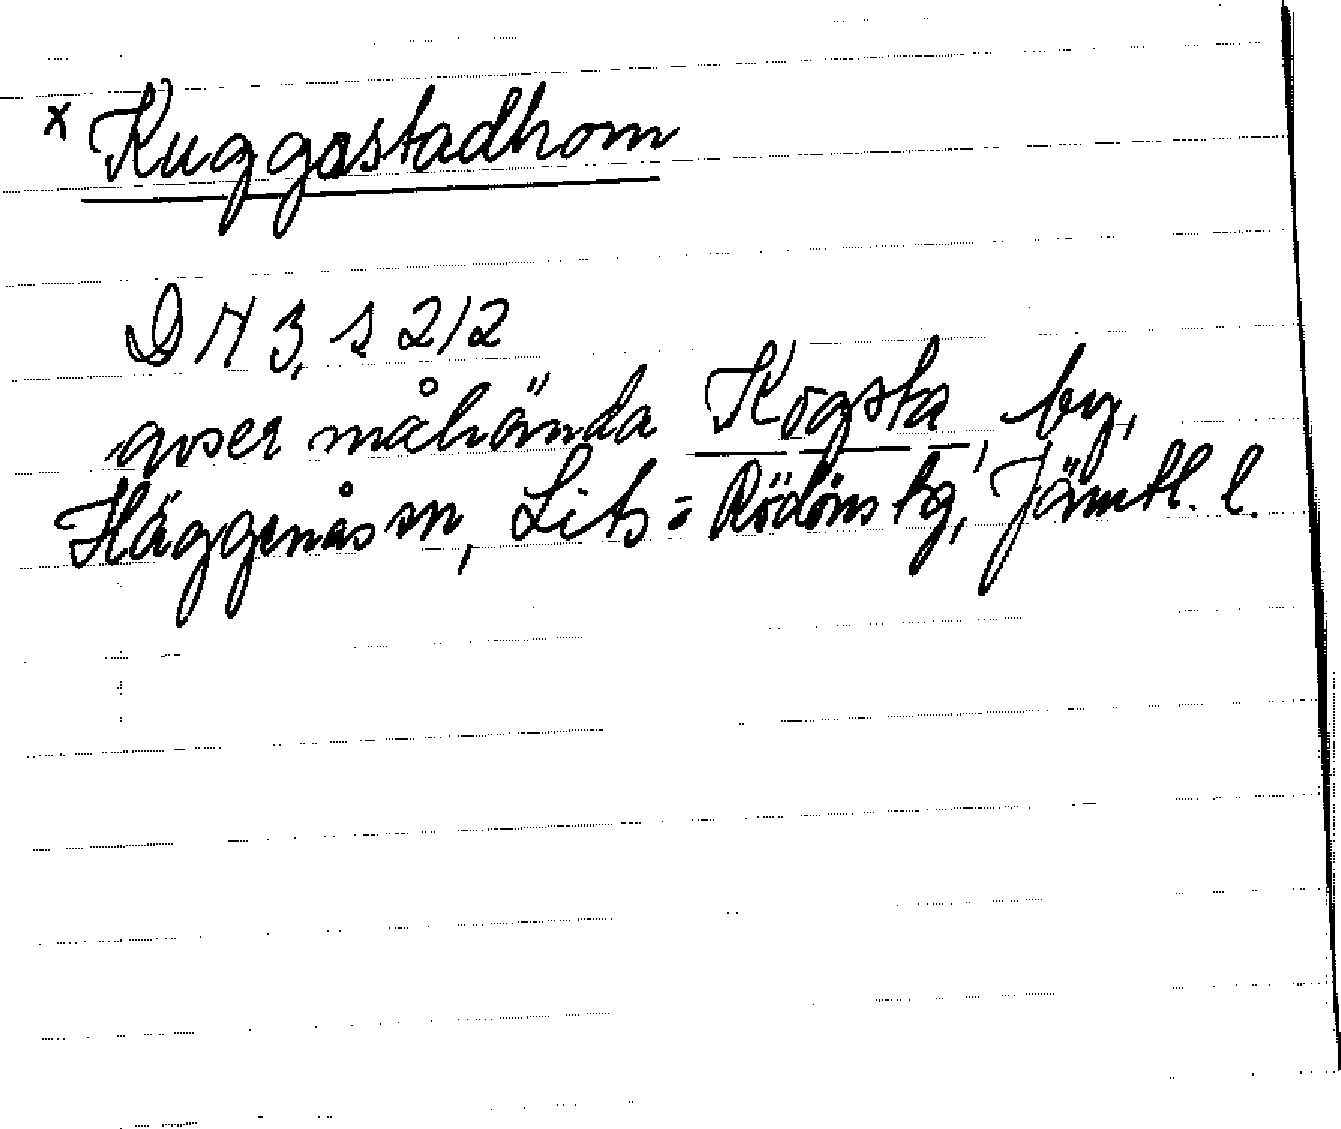 x Kuggastadhom
DN 3, s 212
avser måhända Kögsta, by,
Häggenås sn, Lits = Rödöns tg, Jämtl. l.